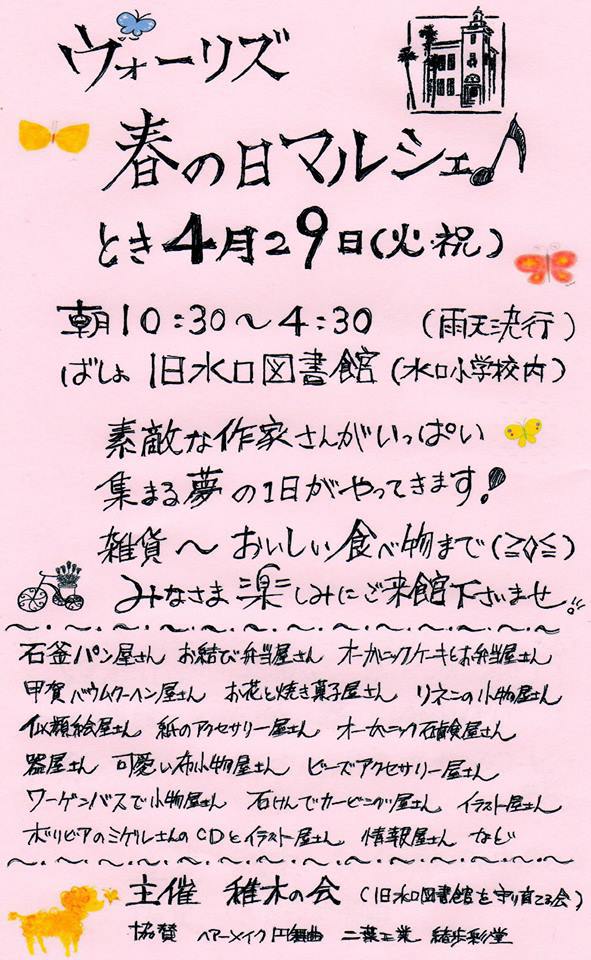 ヴォーリズ
春の日マルシェ♪
とき4月29日(火・祝)
朝10:30〜4:30 (雨天決行)
ばしょ 旧水口図書館(水口小学校内)
素敵な作家さんがいっぱい
集まる夢の1日がやってきます!
雑貨〜おいしい食べ物まで(≧◇≦)
みなさま楽しみにご来館下さいませ!!
石釜パン屋さん お結び弁当屋さん オーガニックケーキとお弁当屋さん
甲賀バウムクーヘン屋さん お花と焼き菓子屋さん リネンの小物屋さん
似顔絵屋さん 紙のアクセサリー屋さん オーガニック石鹸屋さん
器屋さん 可愛い布小物屋さん ビーズアクセサリー屋さん
ワーゲンバスで小物屋さん 石けんでカービング屋さん イラスト屋さん
ボリビアのミゲルさんのCDとイラスト屋さん 情報屋さん など
主催 稚木の会 (旧水口図書館を守り育てる会)
協賛 ヘアーメイク円舞曲 二葉工業 彩堂